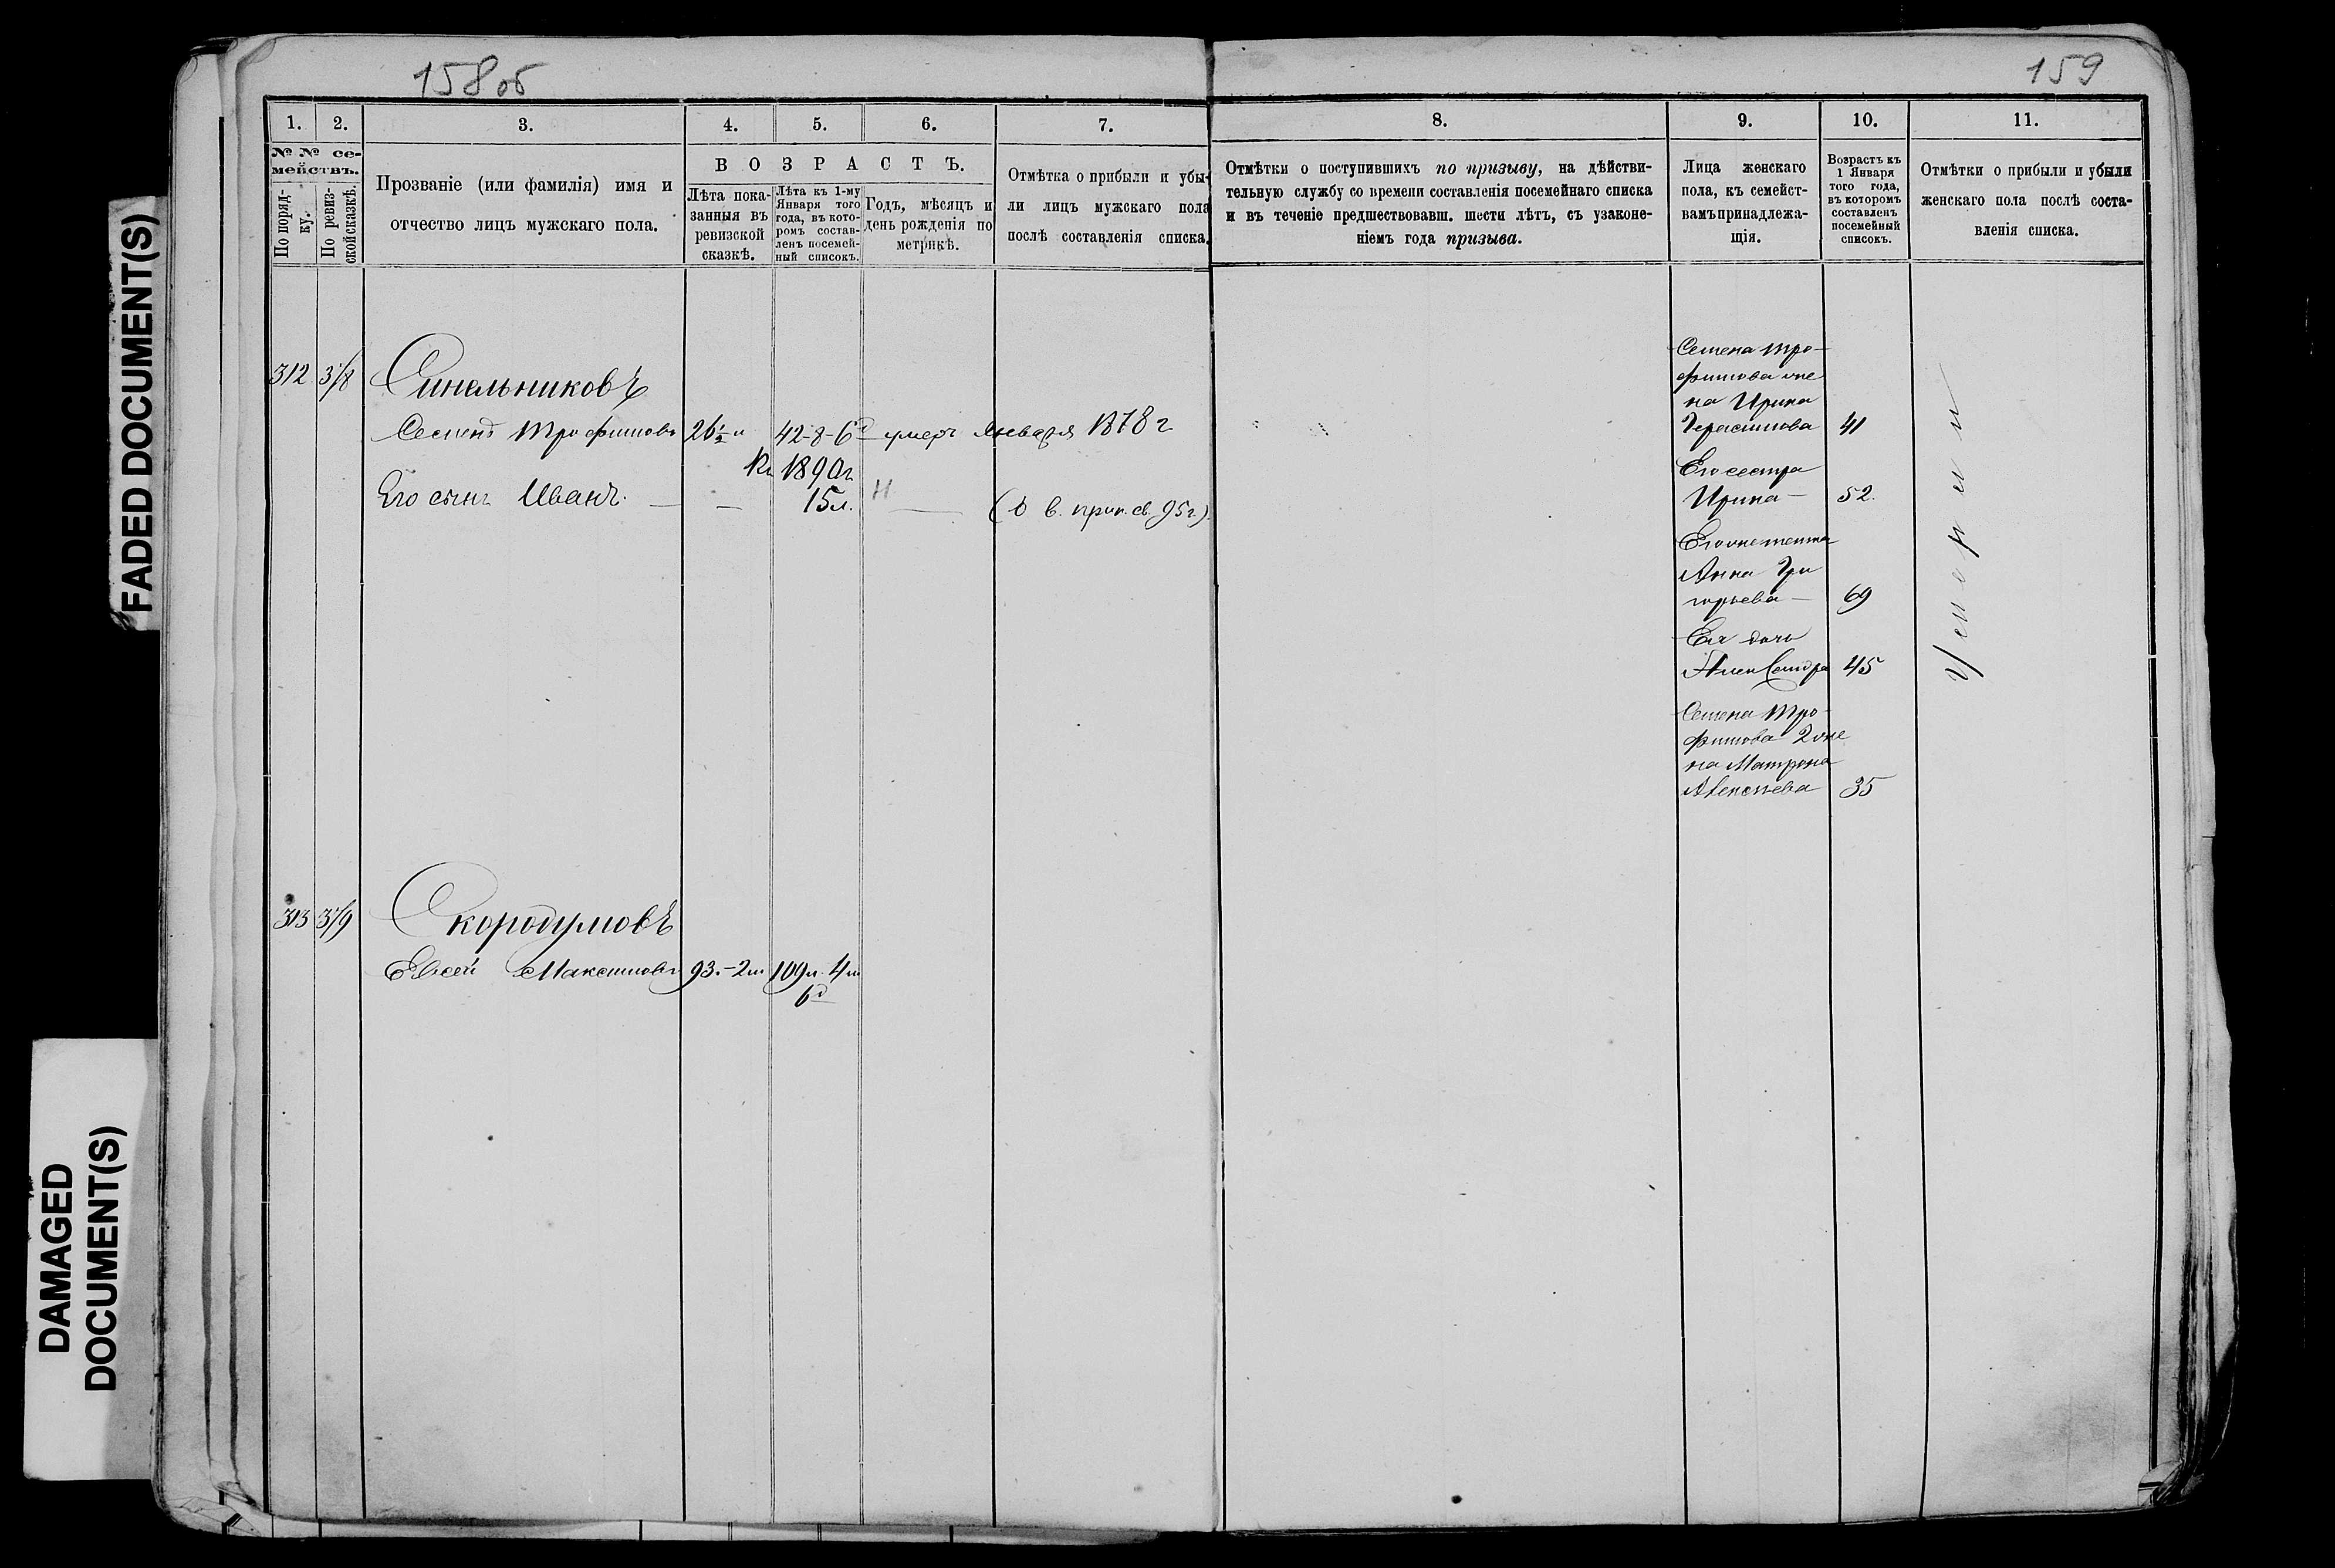 FADED DOCUMENT(S)
DAMAGED
DOCUMENT(S)
158об
159
1.
2.
3.
4.
5.
6.
7.
8.
9.
10.
11.
№ № се-
мействъ.
По поряд-
ку.
По ревиз-
ской сказкѣ.
Прозваніе (или фамилія) имя и
отчество лицъ мужскаго пола.
ВОЗРАСТЪ.
Лѣта пока-
занныя въ
ревизской
сказкѣ.
Лѣта къ 1-му
Января того
года, въ кото-
ромъ состав-
ленъ посемей-
ный списокъ.
Годъ, мѣсяцъ и
день рожденія по
метрикѣ.
Отмѣтка о прибыли и убы-
ли лицъ мужскаго пола
послѣ составленія списка.
Отмѣтки о поступившихъ по призыву, на дѣйстви-
тельную службу со времени составленія посемейнаго списка
и въ теченіе предшествовавш. шести лѣтъ, съ узаконе-
ніемъ года призыва.
Лица женскаго
пола, къ семейст-
вамъ принадлежа-
щія.
Возрастъ къ
1 Января
того года,
въ которомъ
составленъ
посемейный
списокъ.
Отмѣтки о прибыли и убыли
женскаго пола послѣ соста-
вленія списка.
312 3/8 Синельниковъ
Семенъ Трофимовъ 26½ 42-8-6д умеръ Января 1878 г
Къ 1890г.
Его сынъ Иванъ. — — 15л. Н — 95г.)
Семена Тро-
фимова же
на Ирина
Герасимова 41
Его сестра
Ирина — 52.
Анна Гри
горьева — 69
Ея дочь
Александра 45
Семена Тро-
фимова 2 же
на Матрона
Алексѣева 35
Умерли
313 3/9 Скородумовъ
Евсей Максимовъ 93.-2м 109л. 4м
6д